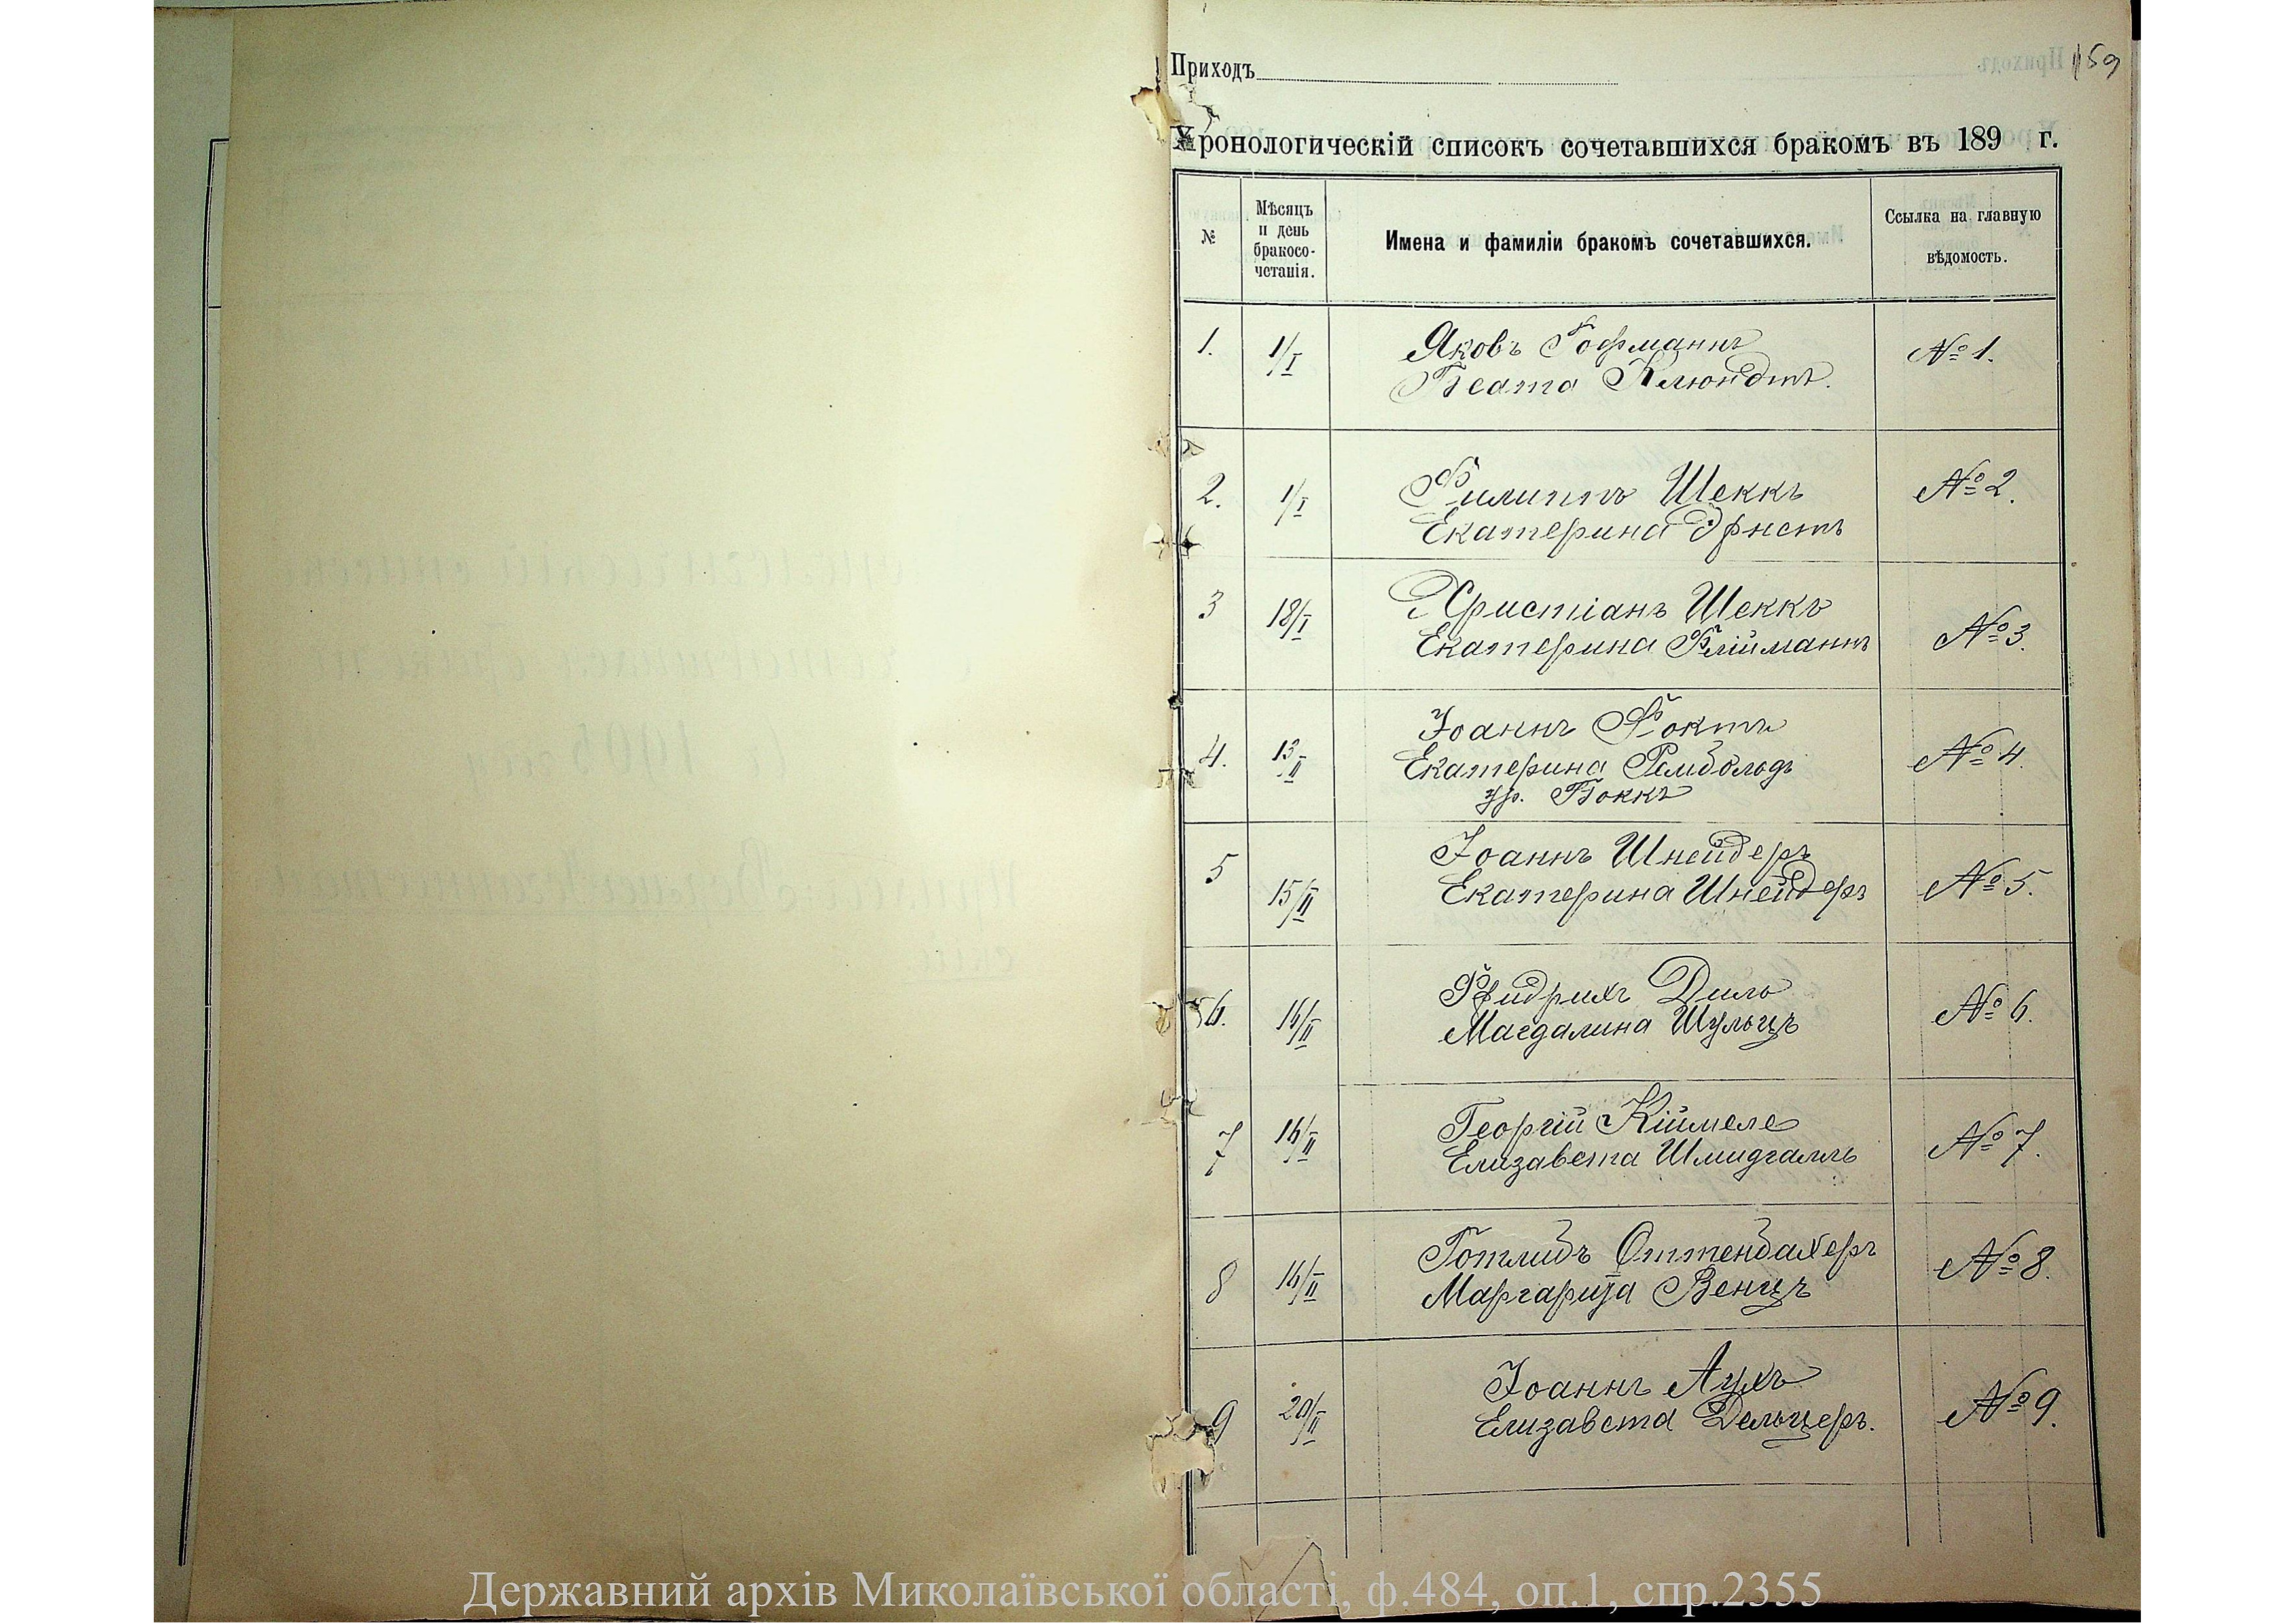 Приходъ
159
Хронологическій списокъ сочетавшихся бракомъ въ 189 г.
№
Мѣсяцъ
и день
бракосо-
четанія.
Имена и фамиліи бракомъ сочетавшихся.
Ссылка на главную
вѣдомость.
1. 1/I Яковъ Гофманнъ № 1.
Беата Клюндтъ.
2. 1/I Филиппъ Шеккъ № 2.
Екатерина Эрнстъ
3 18/I Христіанъ Шеккъ № 3.
Екатерина
4. 13/II Іоаннъ Фохтъ № 4.
Екатерина Рембольдъ
ур. Боккъ
5 15/II Іоаннъ Шнейдеръ № 5.
Екатерина Шнейдеръ
6. 16/II Фридрихъ Диль № 6.
Магдалина Шульцъ
7 16/II Георгій Кіймеле № 7.
Елизавета Шмидгалль
8 16/II Готлибъ Оттенбахеръ № 8.
Маргарита Венцъ
9 20/II Іоаннъ Аухъ № 9.
Елизавета Дельцеръ.
Державний архів Миколаївської області, ф.484, оп.1, спр.2355